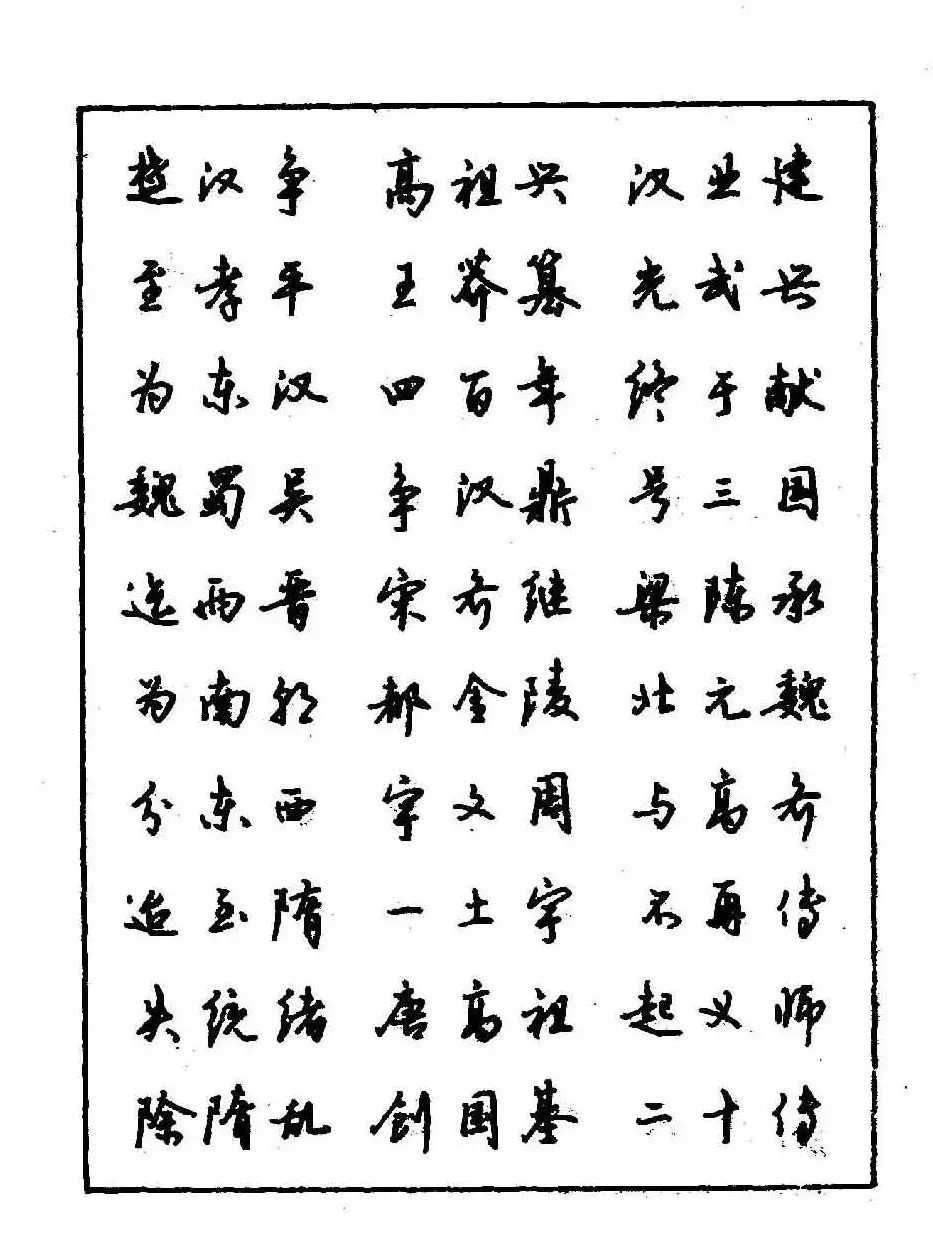 楚汉争 高祖兴 汉业建
至孝平 王莽篡 光武兴
为东汉 四百年 终于献
魏蜀吴 争汉鼎 号三国
迄两晋 宋齐继 梁陈承
为南朝 都金陵 北元魏
分东西 宇文周 与高齐
迨至隋 一土宇 不再传
失统绪 唐高祖 起义师
除隋乱 创国基 二十传